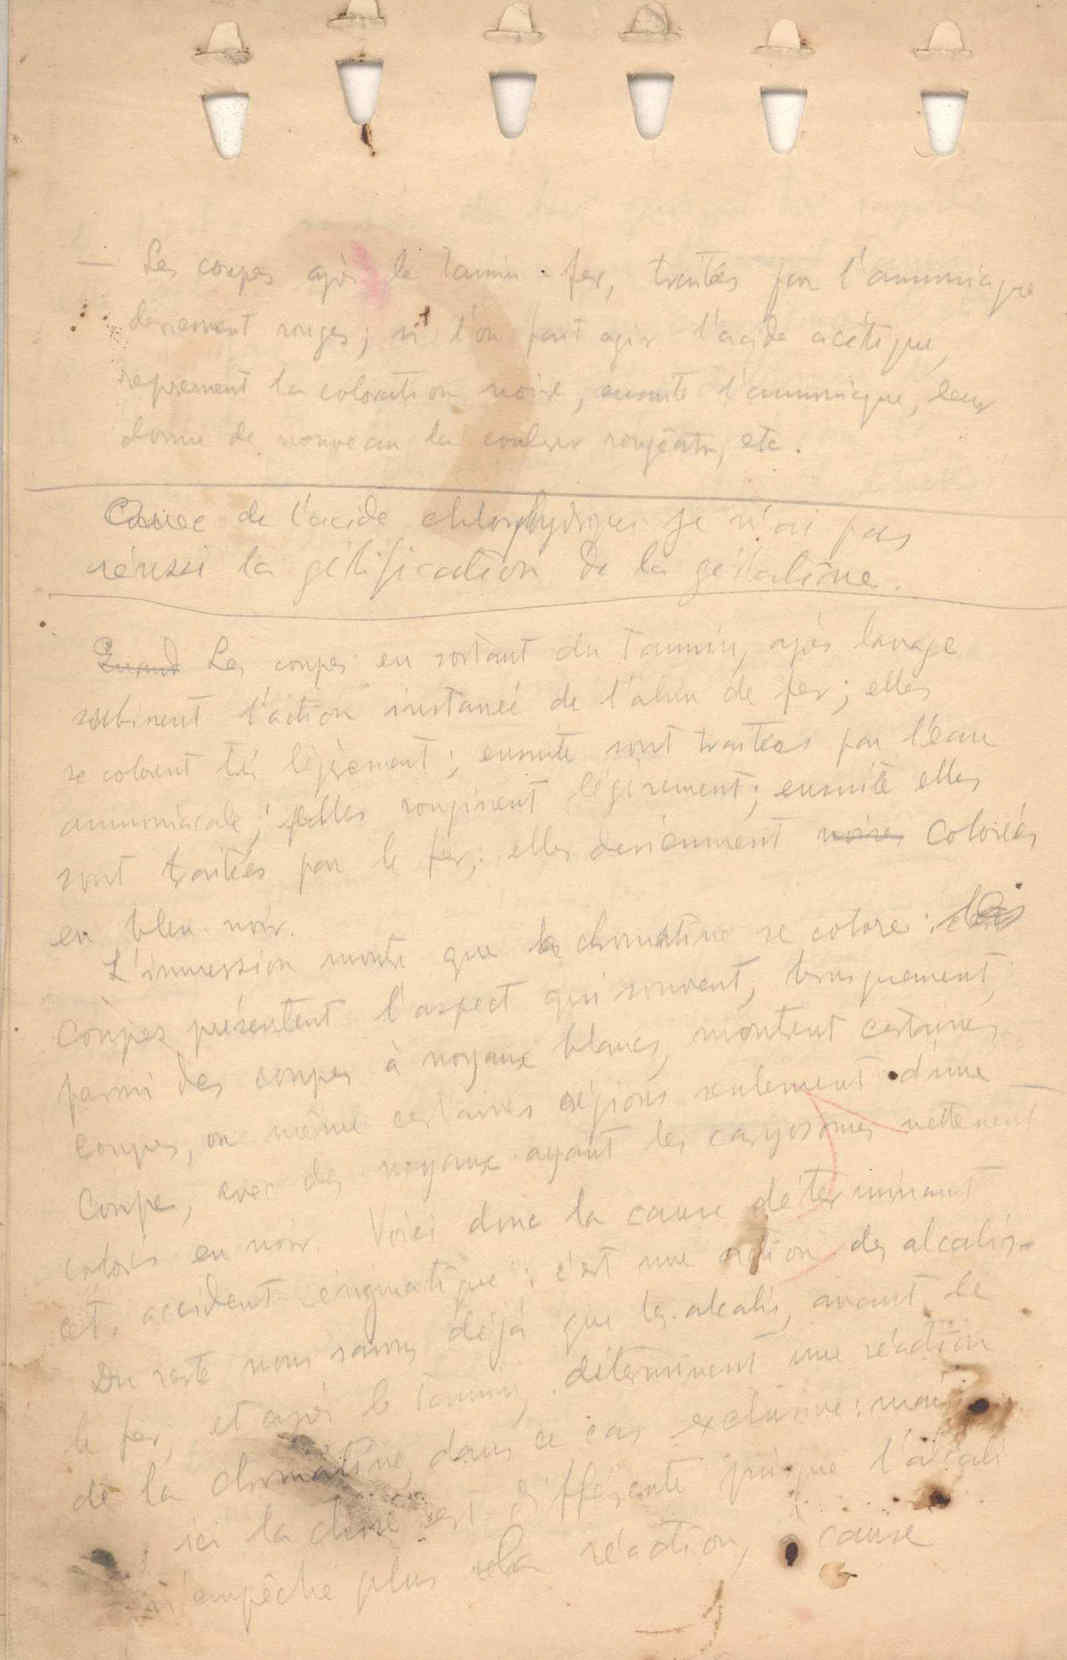 — Les coupes après le tannin-fer, traitées par l'ammoniaque
deviennent rouges; si l'on fait agir l'acide acétique,
reprennent la coloration noire, ensuite l'ammoniaque, leur
donne de nouveau la couleur rougeâtre, etc.
de l'acide chlorhydrique je n'ai pas
réussi la gélification de la gélatine.
Quand Les coupes en sortant du tannin, après lavage
subirent l'action instanée de l'alun de fer; elles
se colorent très légèrement; ensuite sont traitées par l'eau
ammoniacale; elles rougirent légèrement; ensuite elles
sont traitées par le fer; elles deviennent noires colorées
en bleu noir.
L'immersion montre que la chromatine se colore: les
coupes présentent l'aspect qui souvent, brusquement,
parmi des coupes à noyaux blancs, montrent certaines
coupes, ou même certaines régions seulement d'une
coupe, avec des noyaux ayant les caryosomes nettement
colorés en noir. Voici donc la cause déterminant
cet accident énigmatique: c'est une action des alcalis.
Du reste nous savons déjà que les alcalis, avant le
le fer, et après le tannin, déterminent une réaction
de la chromatine, dans ce cas exclusive: mais
ici la chose est différente puisque l'alcali
n'empêche plus la réaction, cause